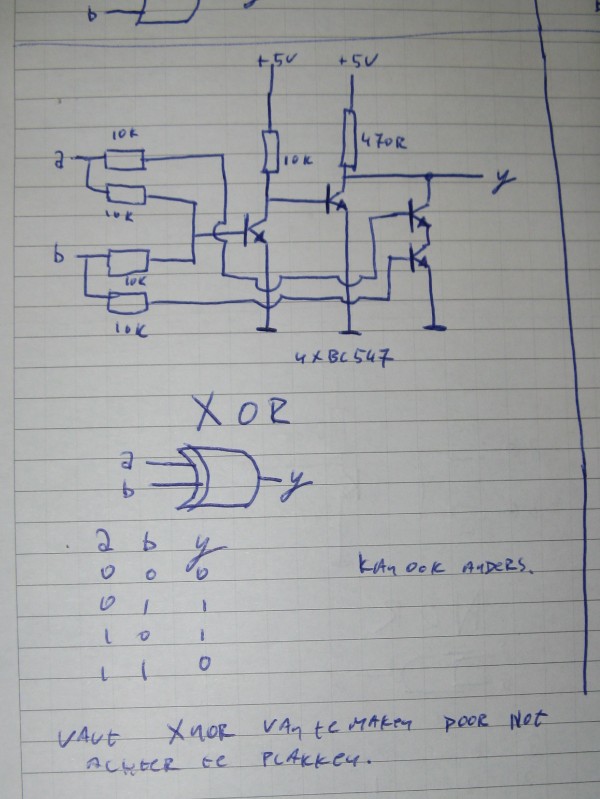 b
+5V +5V
10K
a
10K
470R
10K
y
b
10K
10K
4xBC547
XOR
a
b
y
a b y
0 0 0
0 1 1
1 0 1
1 1 0
KAN OOK ANDERS.
VALT XNOR VAN TE MAKEN DOOR NOT
ACHTER TE PLAKKEN.